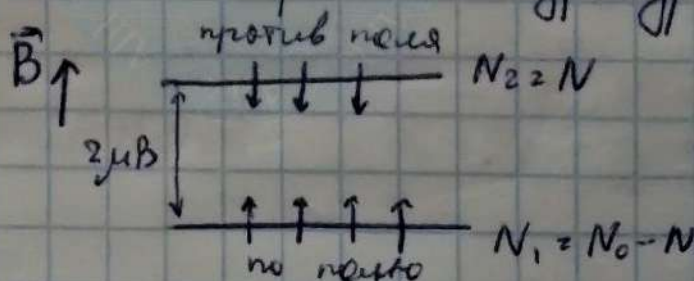 против поля
B⃗
N₂ = N
2μB
N₁ = N₀ - N
по полю